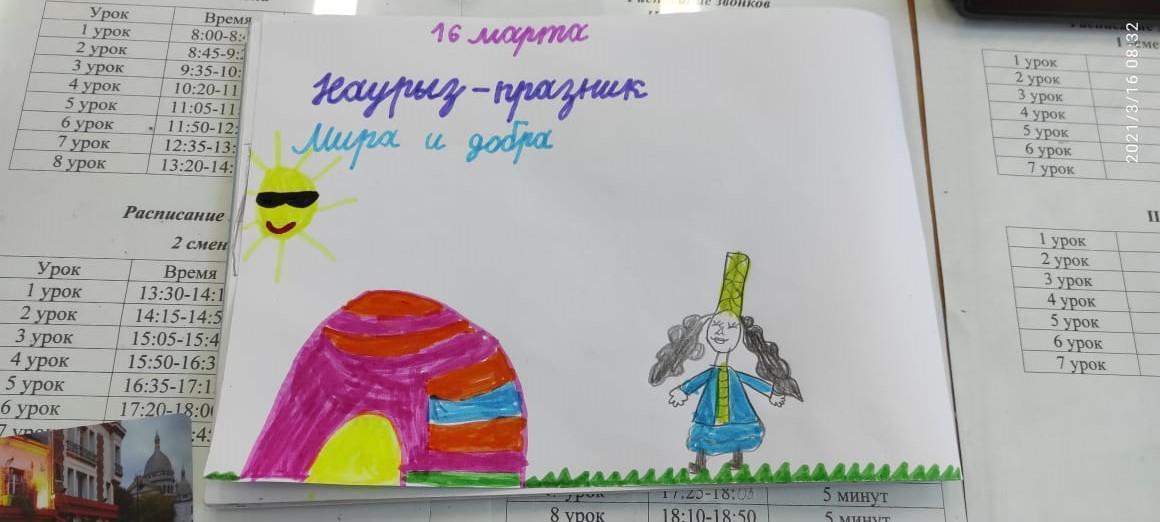 16 марта
Наурыз - празник
Мира и добра
2021/3/16 08:32
Урок Время
1 урок 8:00-8:
2 урок 8:45-9:
3 урок 9:35-10:
4 урок 10:20-11
5 урок 11:05-11
6 урок 11:50-12:
7 урок 12:35-13:
8 урок 13:20-14:
Расписание
2 смен
Урок Время
1 урок 13:30-14:1
2 урок 14:15-14:5
3 урок 15:05-15:4
4 урок 15:50-16:3
5 урок 16:35-17:1
6 урок 17:20-18:0
звонков
1 урок
2 урок
3 урок
4 урок
5 урок
6 урок
7 урок
1 урок
2 урок
3 урок
4 урок
5 урок
6 урок
7 урок
урок 17:25-18:03 5 минут
8 урок 18:10-18:50 5 минут